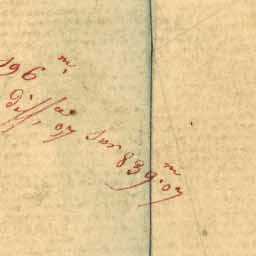 196 m.
diff. ce 07 sur 839 m. 07